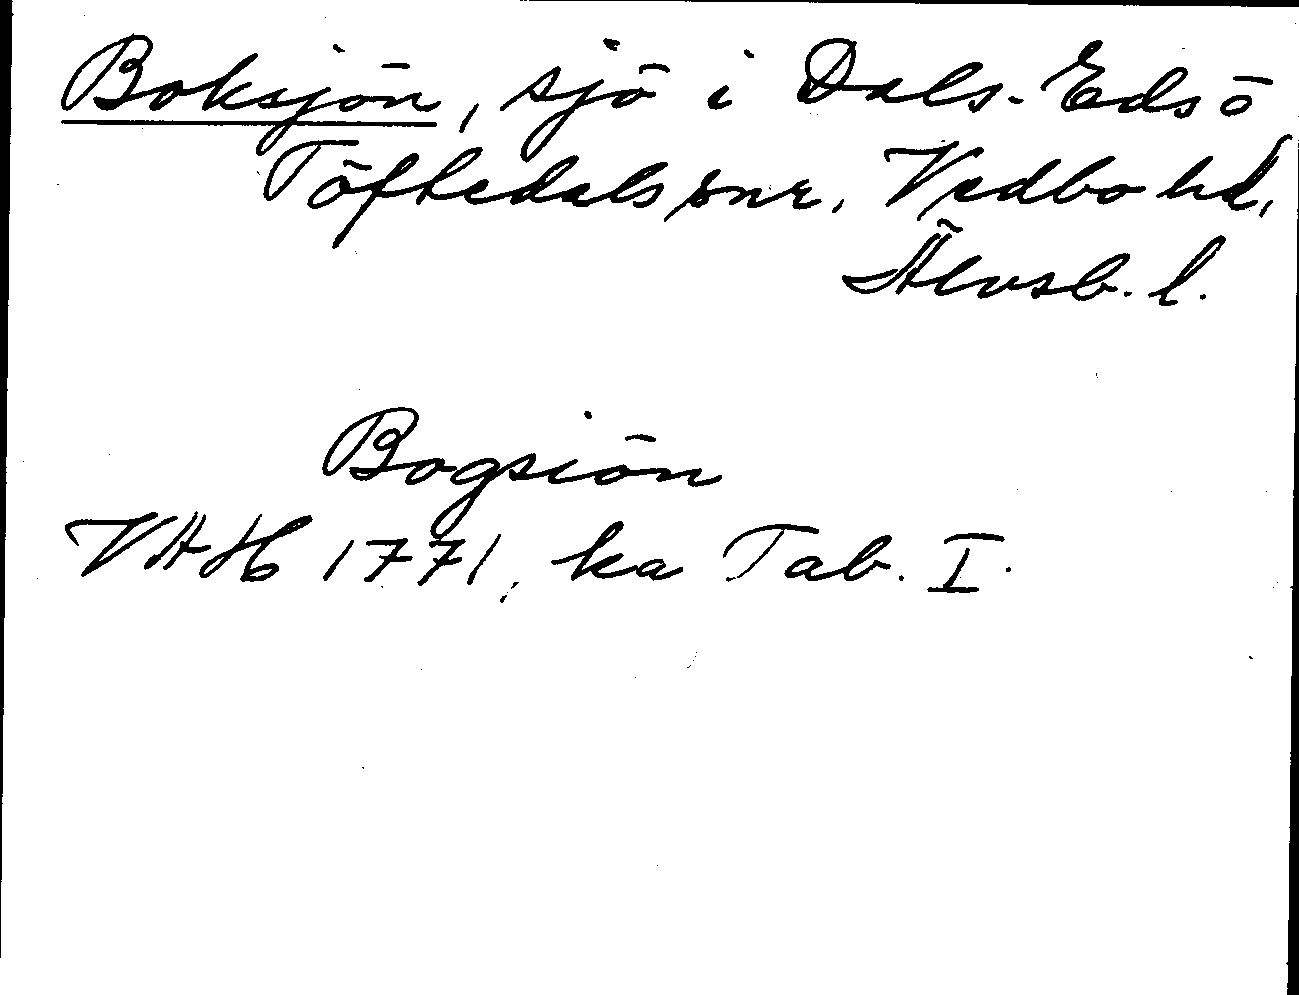 Boksjön, sjö i Dals-Eds o
Töftedals snr, Vedbo hd,
Älvsb. l.
Bogsiön
VAH 1771, ka Tab. I.